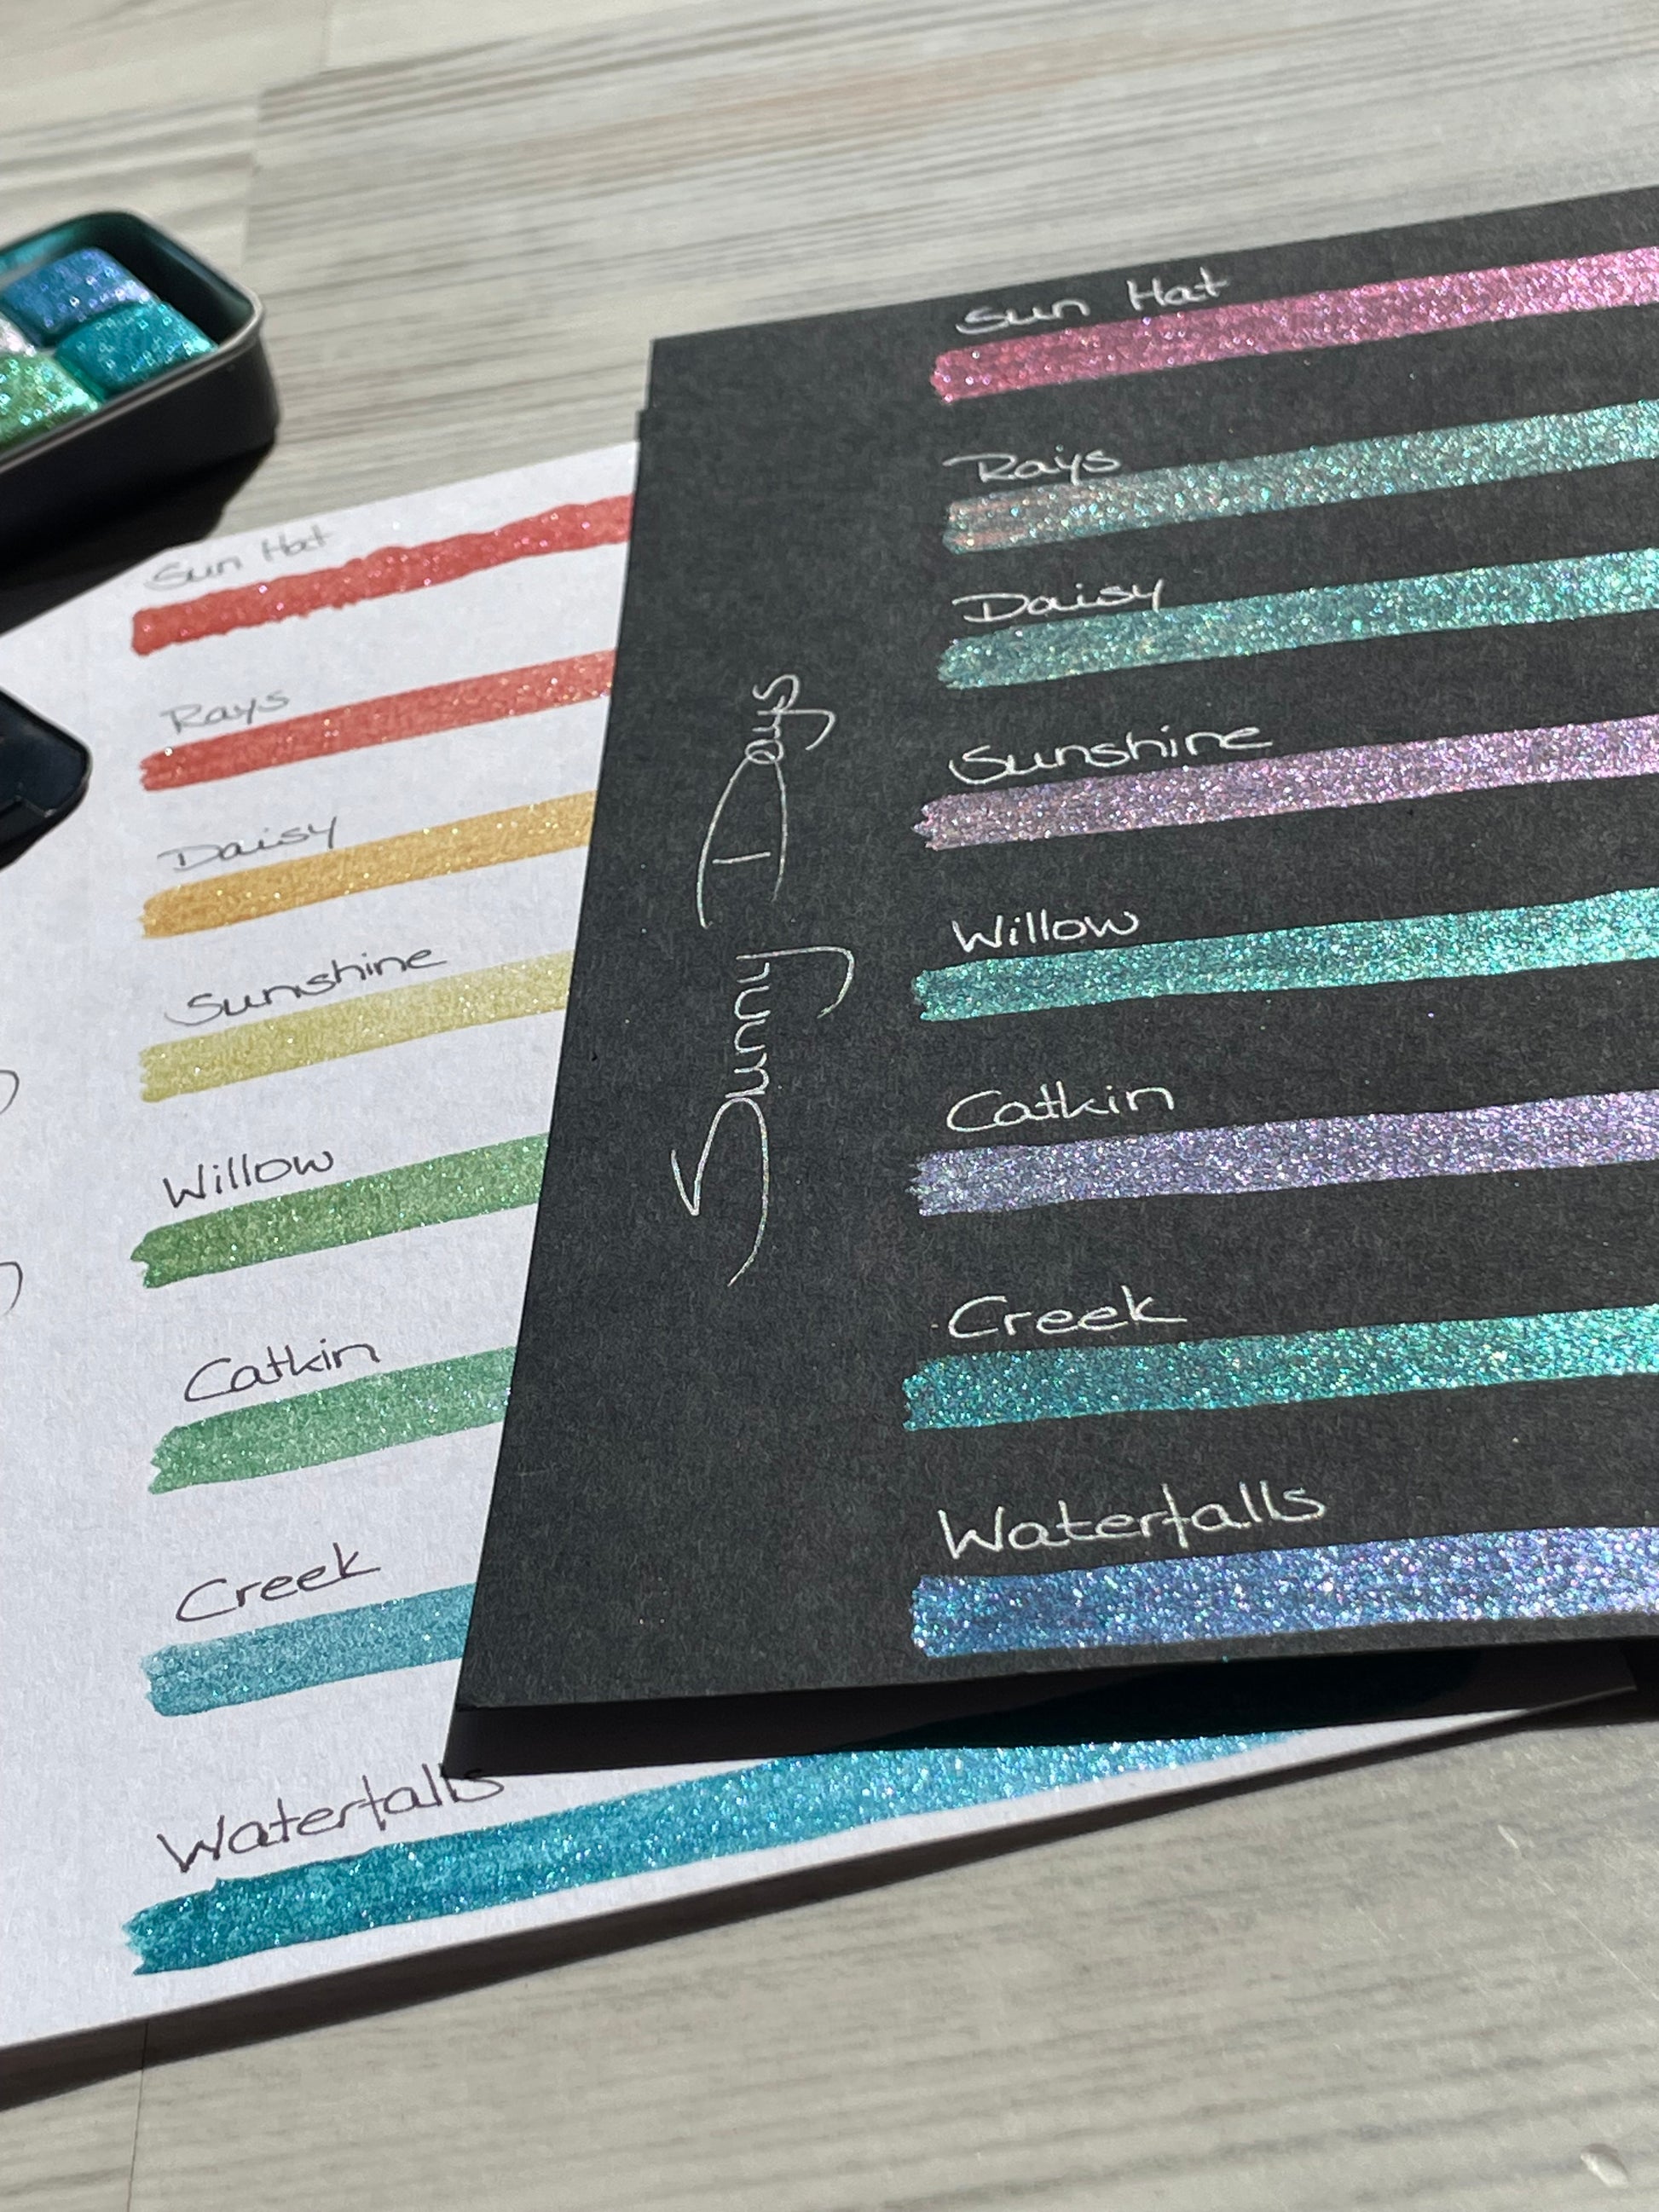 Sun Hat
Rays
Daisy
Sunshine
Willow
Catkin
Creek
Waterfalls
Sunny Days
Sun Hat
Rays
Daisy
Sunshine
Willow
Catkin
Creek
Waterfalls